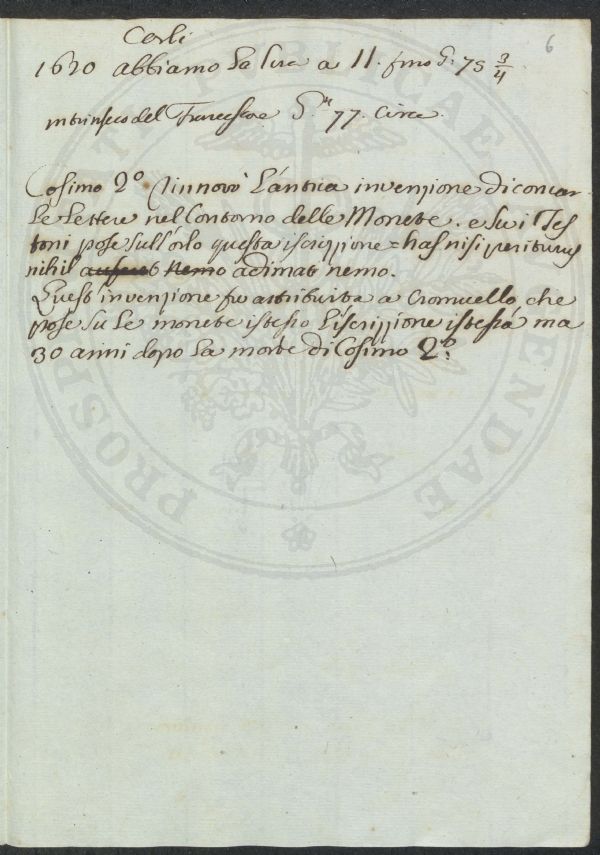 6
Carli
1630 abbiamo La lira a 11. fino G: 75 3/4
intrinseco del Francescone G.ni 77. Circa.
Cosimo 2º Rinnovò L'antica invenzione di coniar
Le Lettere nel Contorno delle Monete. e Su i Tes
toni pose sull'orlo questa iscrizzione = has nisi periturus
nihil adimat nemo.
Quest invenzione fu attribuita a Cromuello, che
pose su Le monete istesso L'iscrizzione istessa ma
30 anni dopo La morte di Cosimo 2º.
PROSP PUBLICAE ENDAE